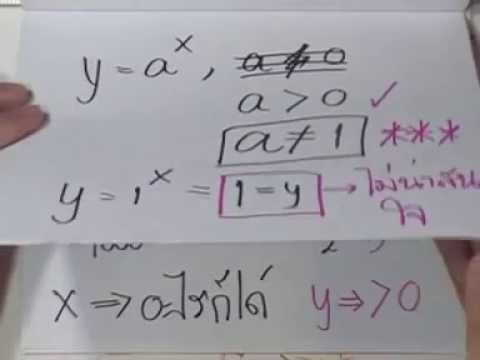 y = aˣ, a ≠ 0
a > 0 ✓
a ≠ 1 ***
y = 1ˣ = 1 = y → ไม่น่าสน
ใจ
x ⇒ อะไรก็ได้ y ⇒ > 0